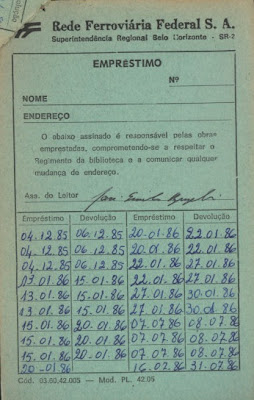 Rede Ferroviária Federal S. A.
Superintendência Regional Belo Horizonte - SR-2
EMPRÉSTIMO
Nº
NOME
ENDEREÇO
O abaixo assinado é responsável pelas obras
emprestadas, comprometendo-se a respeitar o
Regimento da biblioteca e a comunicar qualquer
mudança do endereço.
Ass. do Leitor
Empréstimo Devolução Empréstimo Devolução
04.12.85 06.12.85 20-01-86 22.01.86
04.12.85 06.12.85 20.01.86 22.01.86
04.12.85 06.12.85 22.01.86 27.01.86
13.01.86 15.01.86 22.01.86 27.01.86
13.01.86 15.01.86 27.01.86 30.01.86
13.01.86 15.01.86 27.01.86 30.01.86
15.01.86 20.01.86 07.07.86 08.07.86
15.01.86 20.01.86 07.07.86 08.07.86
15.01.86 20-01-86 07.07.86 08.07.86
20-01-86 16.07.86 31.07.86
Cód. 03.60.42.005 — Mod. PL. 42.05